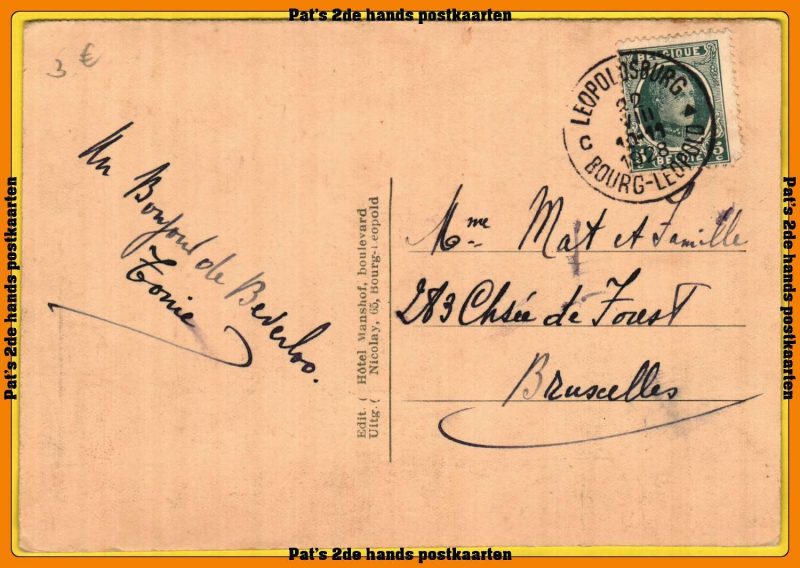 Pat's 2de hands postkaarten
3 €
BELGIQUE
BELGIË
5 5
LEOPOLDSBURG
22
VIII
1928
C
BOURG-LEOPOLD
Un Bonjour de Beverloo.
Tonie
Edit. ( Hôtel Manshof, boulevard
Uitg. ( Nicolay, 65, Bourg-Leopold
Mme Mat et Famille
283 Chsée de Forest
Bruxelles
Pat's 2de hands postkaarten
Pat's 2de hands postkaarten
Pat's 2de hands postkaarten